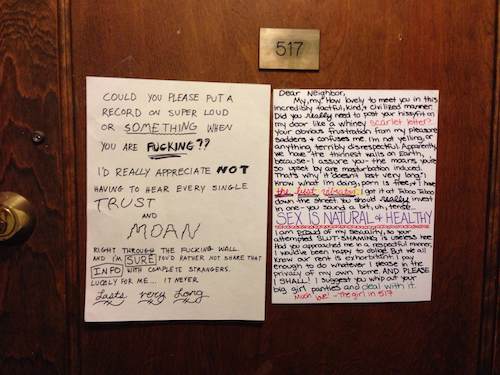 517
COULD YOU PLEASE PUT A
RECORD ON SUPER LOUD
OR SOMETHING WHEN
YOU ARE FUCKING??
I'D REALLY APPRECIATE NOT
HAVING TO HEAR EVERY SINGLE
TRUST
AND
MOAN
RIGHT THROUGH THE FUCKING WALL.
AND I'M SURE YOU'D RATHER NOT SHARE THAT
INFO WITH COMPLETE STRANGERS.
LUCKLY FOR ME... IT NEVER
Lasts very Long
Dear Neighbor,
My, my. How lovely to meet you in this
incredibly tactful, kind, & civilized manner.
Did you really need to post your hissyfit on
my door like a whiney scarlet letter?
Your obvious frustration from my pleasure
saddens & confuses me. I'm not yelling, or
anything terribly disrespectful. Apparently,
we have the thinnest walls on Earth,
because - I assure you - the moans you're
so upset by are masturbation induced.
That's why it "doesn't last very long". I
know what I'm doing, porn is free, & I have
the best vibrator. I got it at Taboo Taboo
down the street. You should really invest
in one - you sound a bit, uh, tense.
SEX IS NATURAL & HEALTHY
I am proud of my sexuality, so your
attempted SLUT-SHAMING is useless here.
Had you approached me in a respectful manner,
I would've been happy to oblige. But we all
know our rent is exhorbitant. I pay
enough to do whatever I please in the
privacy of my own home. AND PLEASE
I SHALL! I suggest you whip out your
big girl panties and deal with it.
Much love! - The girl in 517